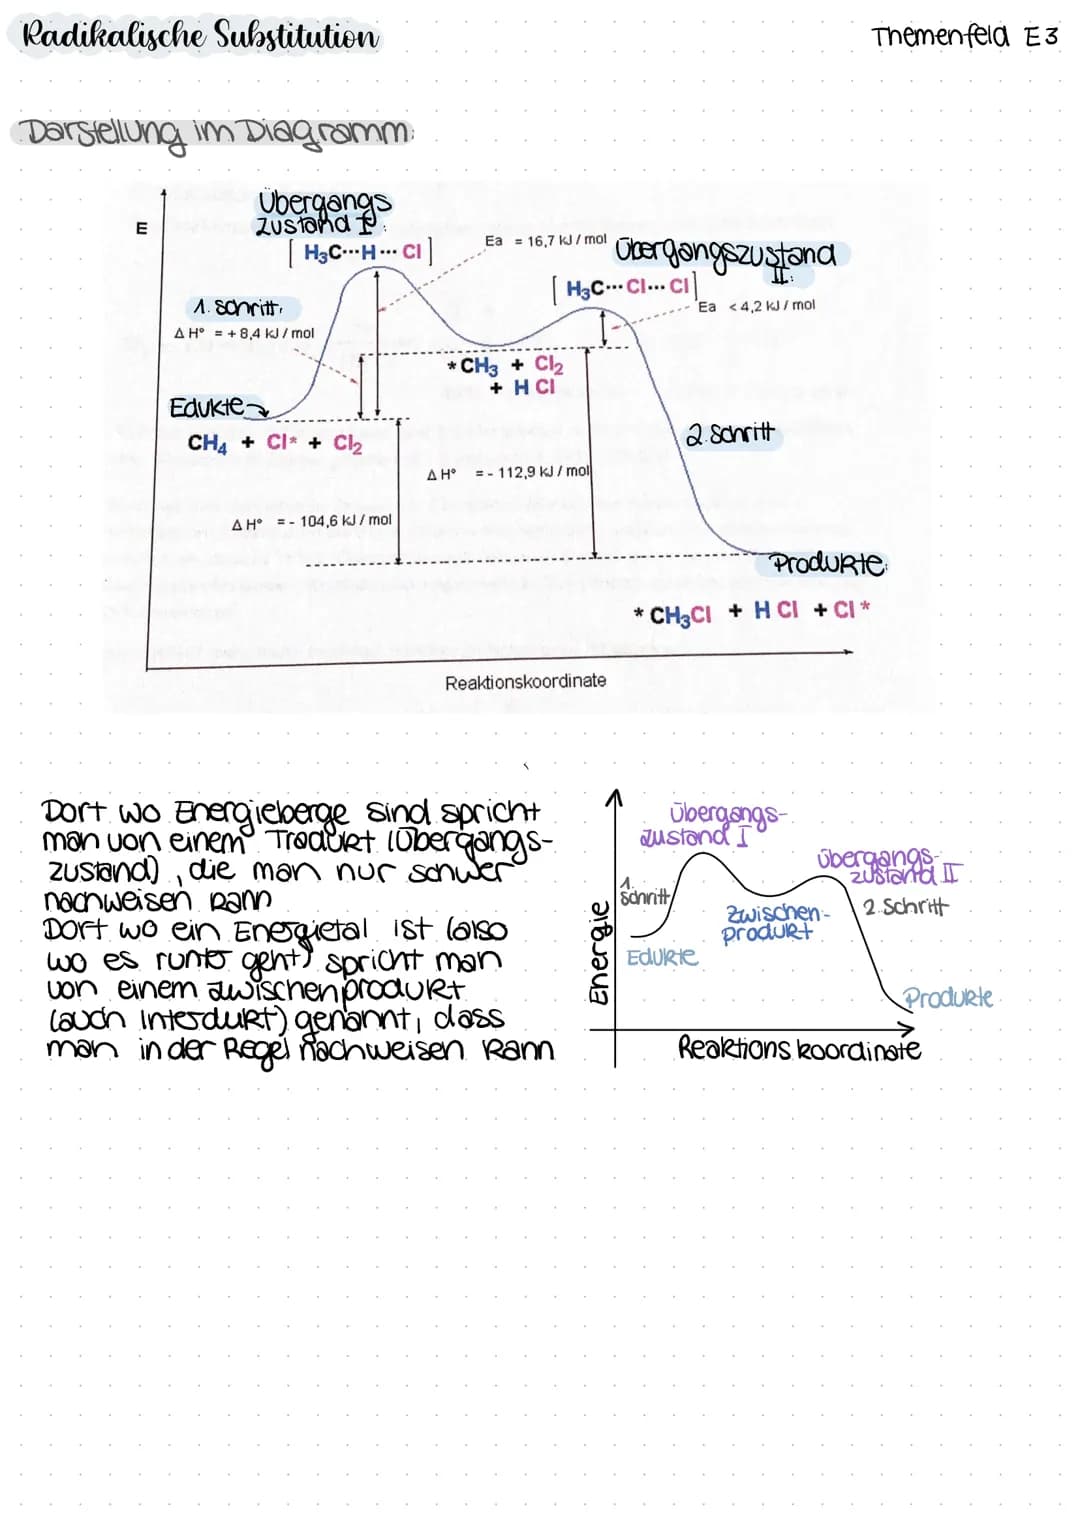 Radikalische Substitution
Themenfeld E3
Darstellung im Diagramm:
E
Übergangs
zustand I:
[ H₃C···H··· Cl ]
Ea = 16,7 kJ / mol
Übergangszustand
II:
[ H₃C··· Cl··· Cl ]
Ea < 4,2 kJ / mol
1. Schritt:
Δ H° = + 8,4 kJ / mol
* CH₃ + Cl₂
+ H Cl
Edukte
CH₄ + Cl* + Cl₂
2. Schritt
Δ H° = - 112,9 kJ / mol
Δ H° = - 104,6 kJ / mol
Produkte:
* CH₃Cl + H Cl + Cl *
Reaktionskoordinate
Dort wo Energieberge sind spricht
man von einem Produkt (Übergangs-
zustand), die man nur schwer
nachweisen kann
Dort wo ein Energietal ist (also
wo es runter geht) spricht man
von einem zwischenprodukt
(auch Interdukt) genannt, dass
man in der Regel nachweisen kann
Energie
Übergangs-
zustand I
Übergangs-
zustand II
1.
Schritt
2. Schritt
Zwischen-
produkt
Edukte
Produkte
Reaktions koordinate